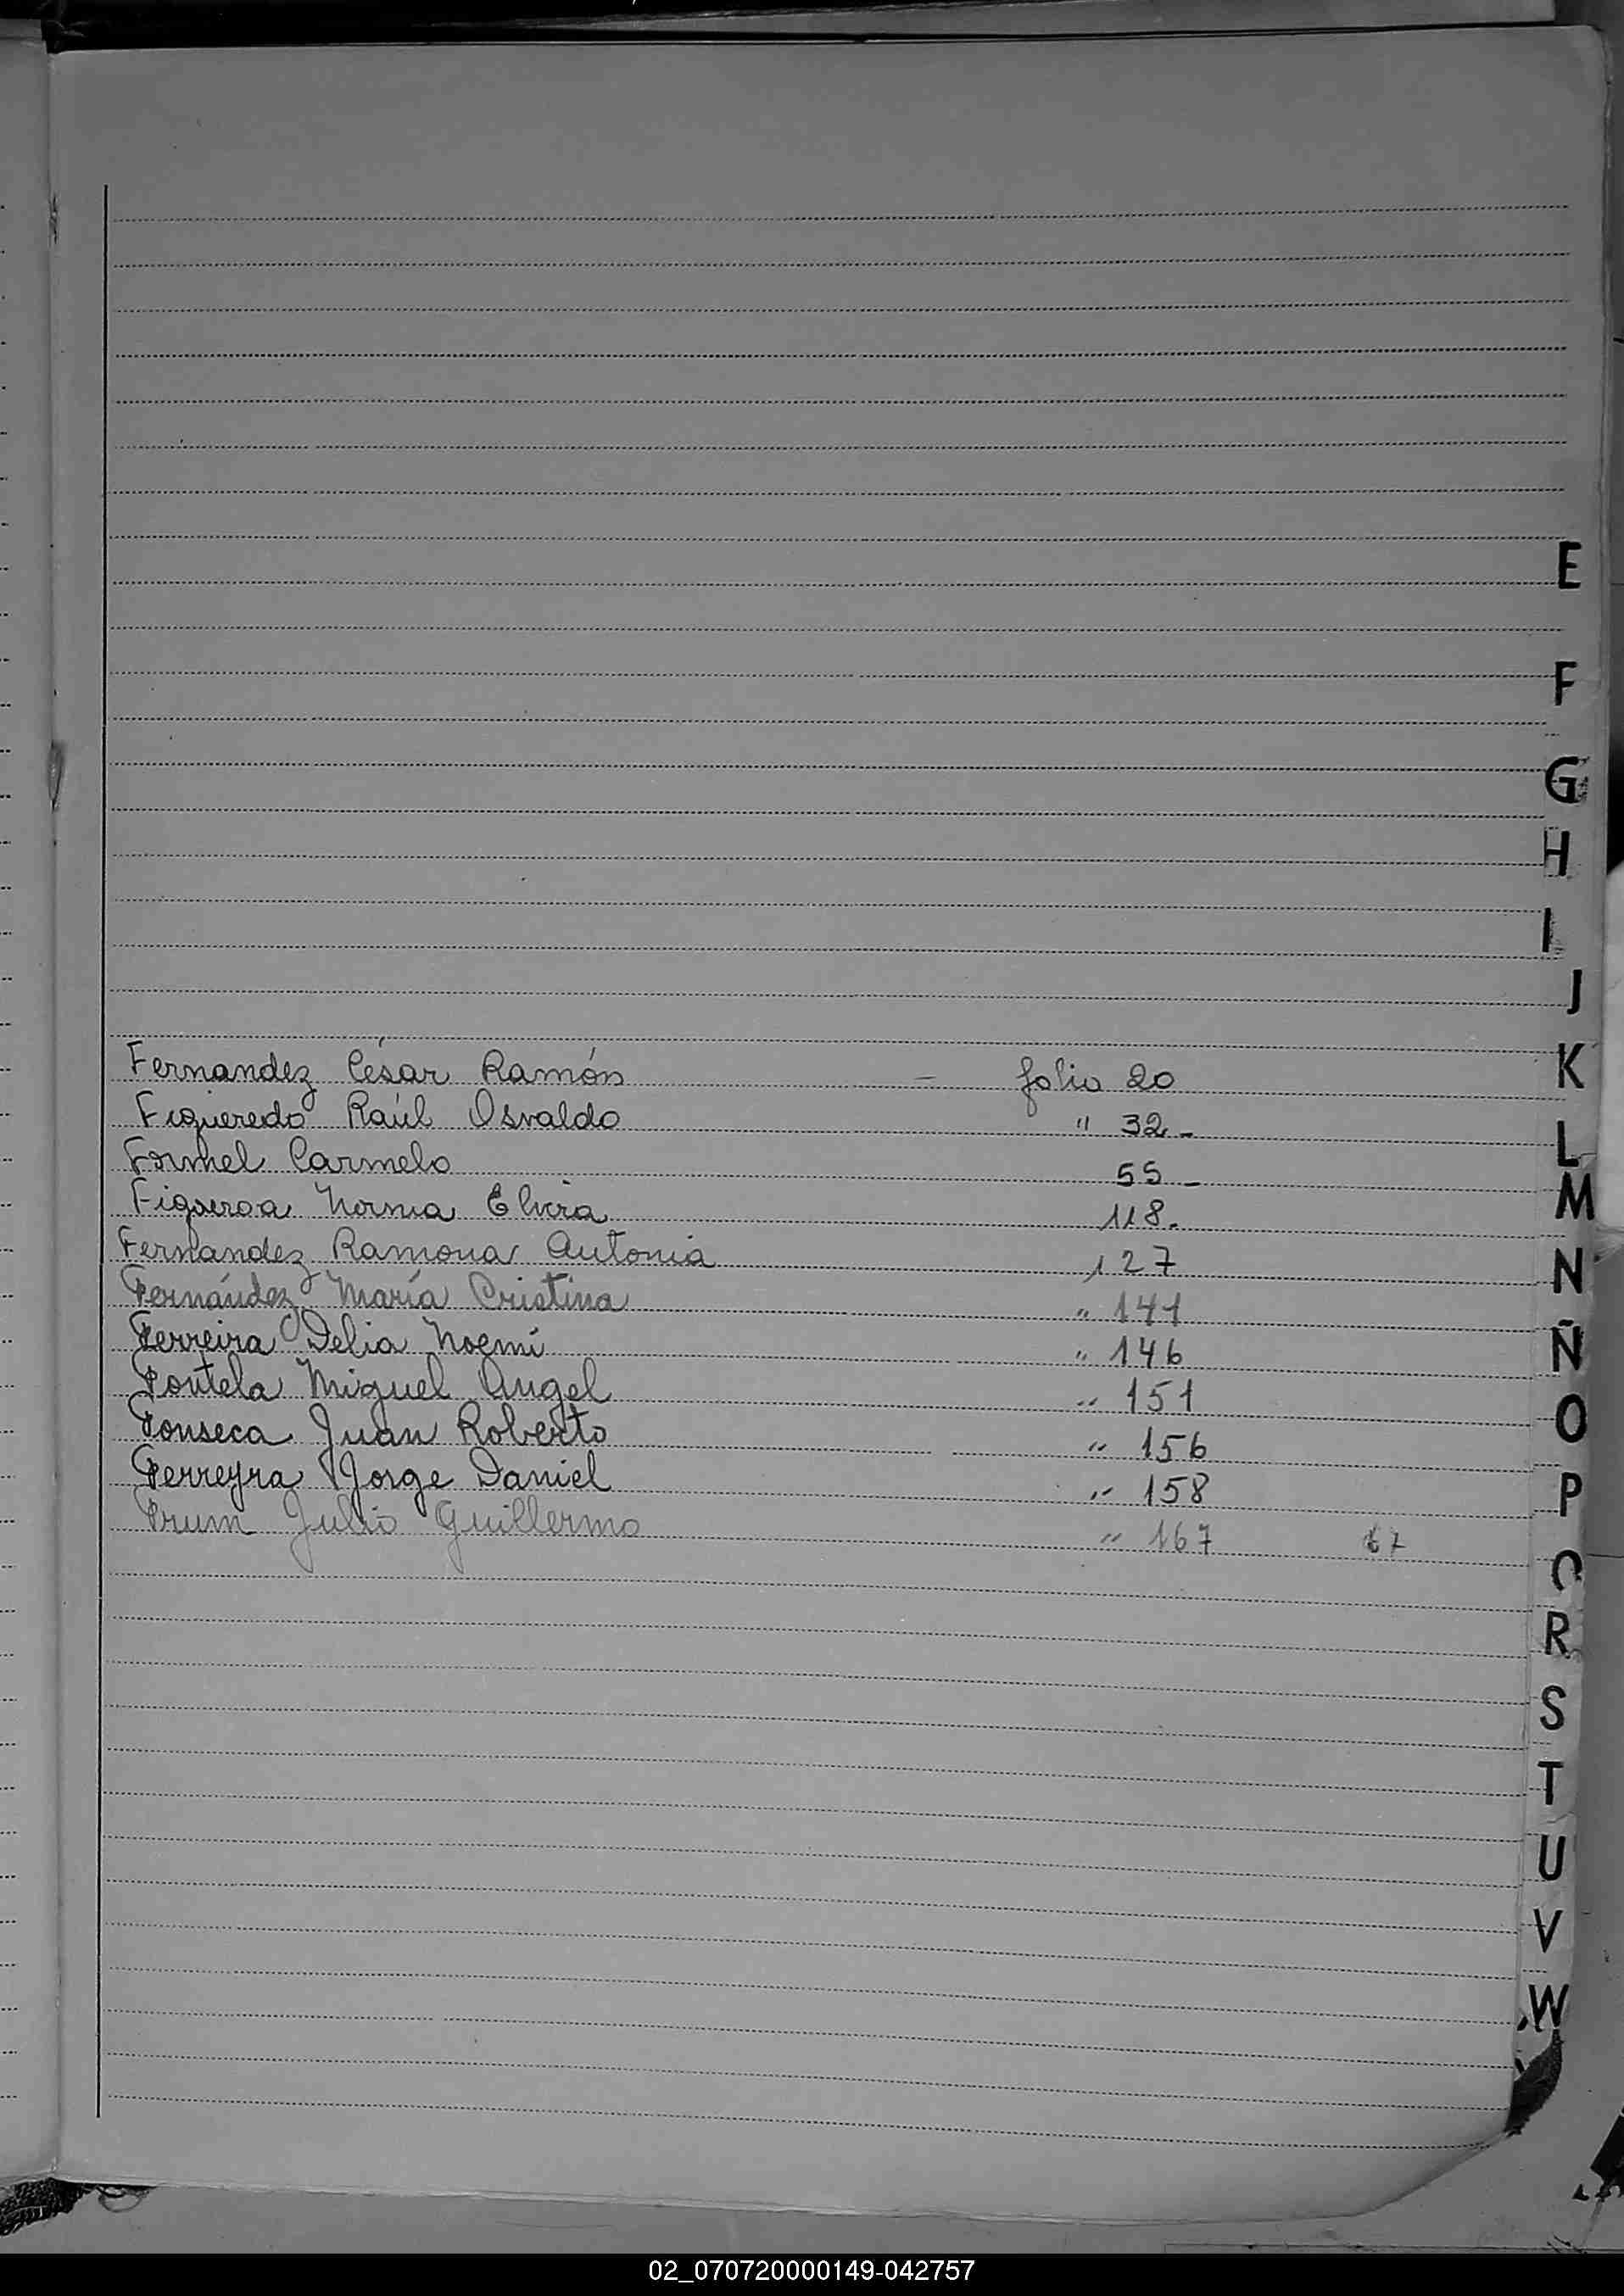 Fernandez César Ramón — folio 20
Figueredo Raúl Osvaldo " 32 -
Formel Carmelo 55 -
Figueroa Norma Elvira 118.
Fernandez Ramona Antonia 127
Fernández María Cristina " 141
Ferreira Delia Noemí " 146
Fontela Miguel Angel " 151
Fonseca Juan Roberto " 156
Ferreyra Jorge Daniel " 158
Frum Julio Guillermo " 167
E
F
G
H
I
J
K
L
M
N
Ñ
O
P
Q
R
S
T
U
V
W
02_070720000149-042757